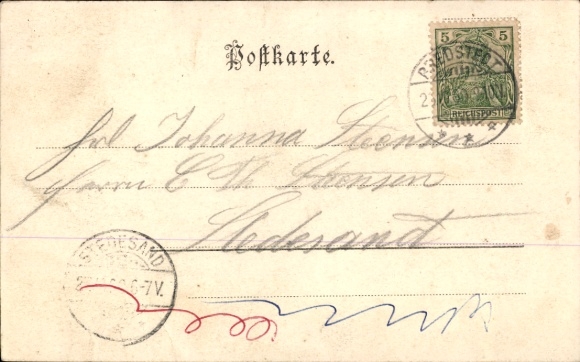 Postkarte.
5 5
REICHSPOST
BREDSTEDT
Frl Johanna Stensen
Herrn C Stensen
Stedesand
STEDESAND
6-7V.